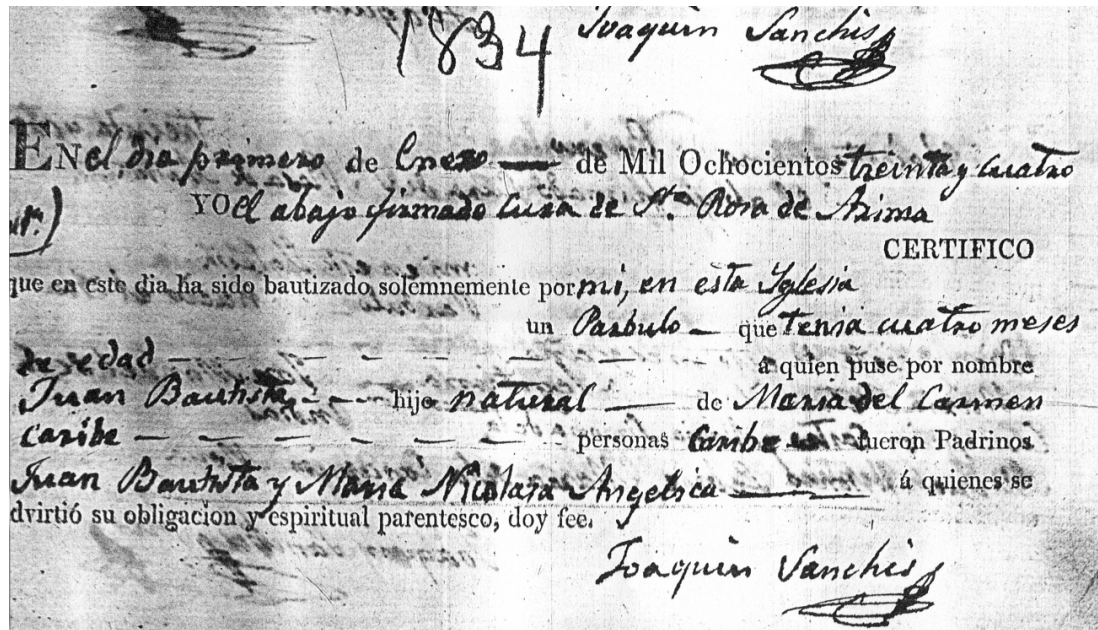 1834 Joaquin Sanchis
EN el dia primero de Enero de Mil Ochocientos treinta y cuatro
YO el abajo firmado Cura de Sta. Rosa de Arima
CERTIFICO
que en este dia ha sido bautizado solemnemente por mi, en esta Yglesia
un Parbulo – que tenia cuatro meses
de edad – – – – – – – – á quien puse por nombre
Juan Bautista – – – hijo natural — de Maria del Carmen
caribe – – – – – – – personas fueron Padrinos
Juan Bautista y Maria Nicolasa Angelica — á quienes se
dvirtió su obligacion y espiritual parentesco, doy fee.
Joaquin Sanchis